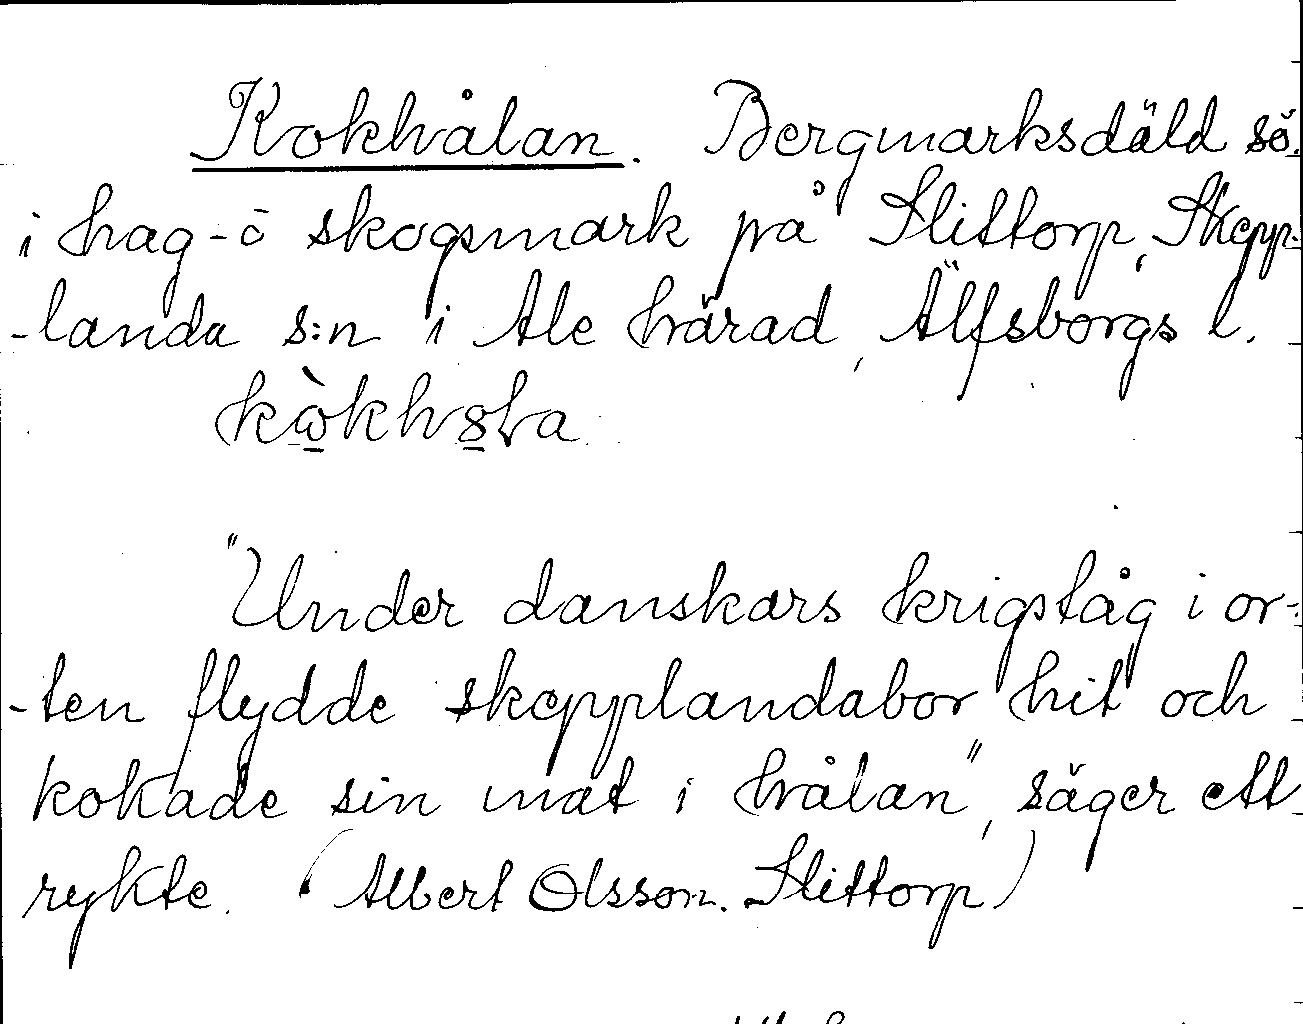 Kokhålan. Bergmarksdäld sö.
i hag- o skogsmark på Slittorp, Skepp-
-landa s:n i Ale härad, Älfsborgs l.

"Under danskars krigståg i or-
-ten flydde skepplandabor hit och
kokade sin mat i hålan", säger ett
rykte. (Albert Olsson. Slittorp)